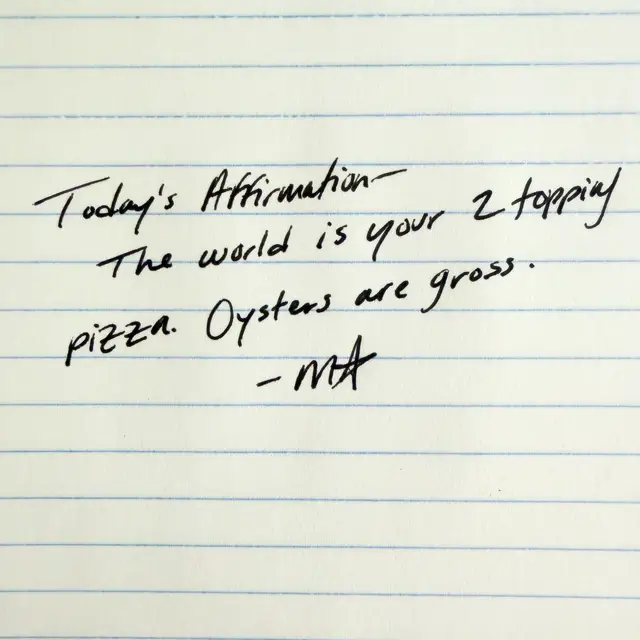 Today's Affirmation-
The world is your 2 topping
pizza. Oysters are gross.
- MA